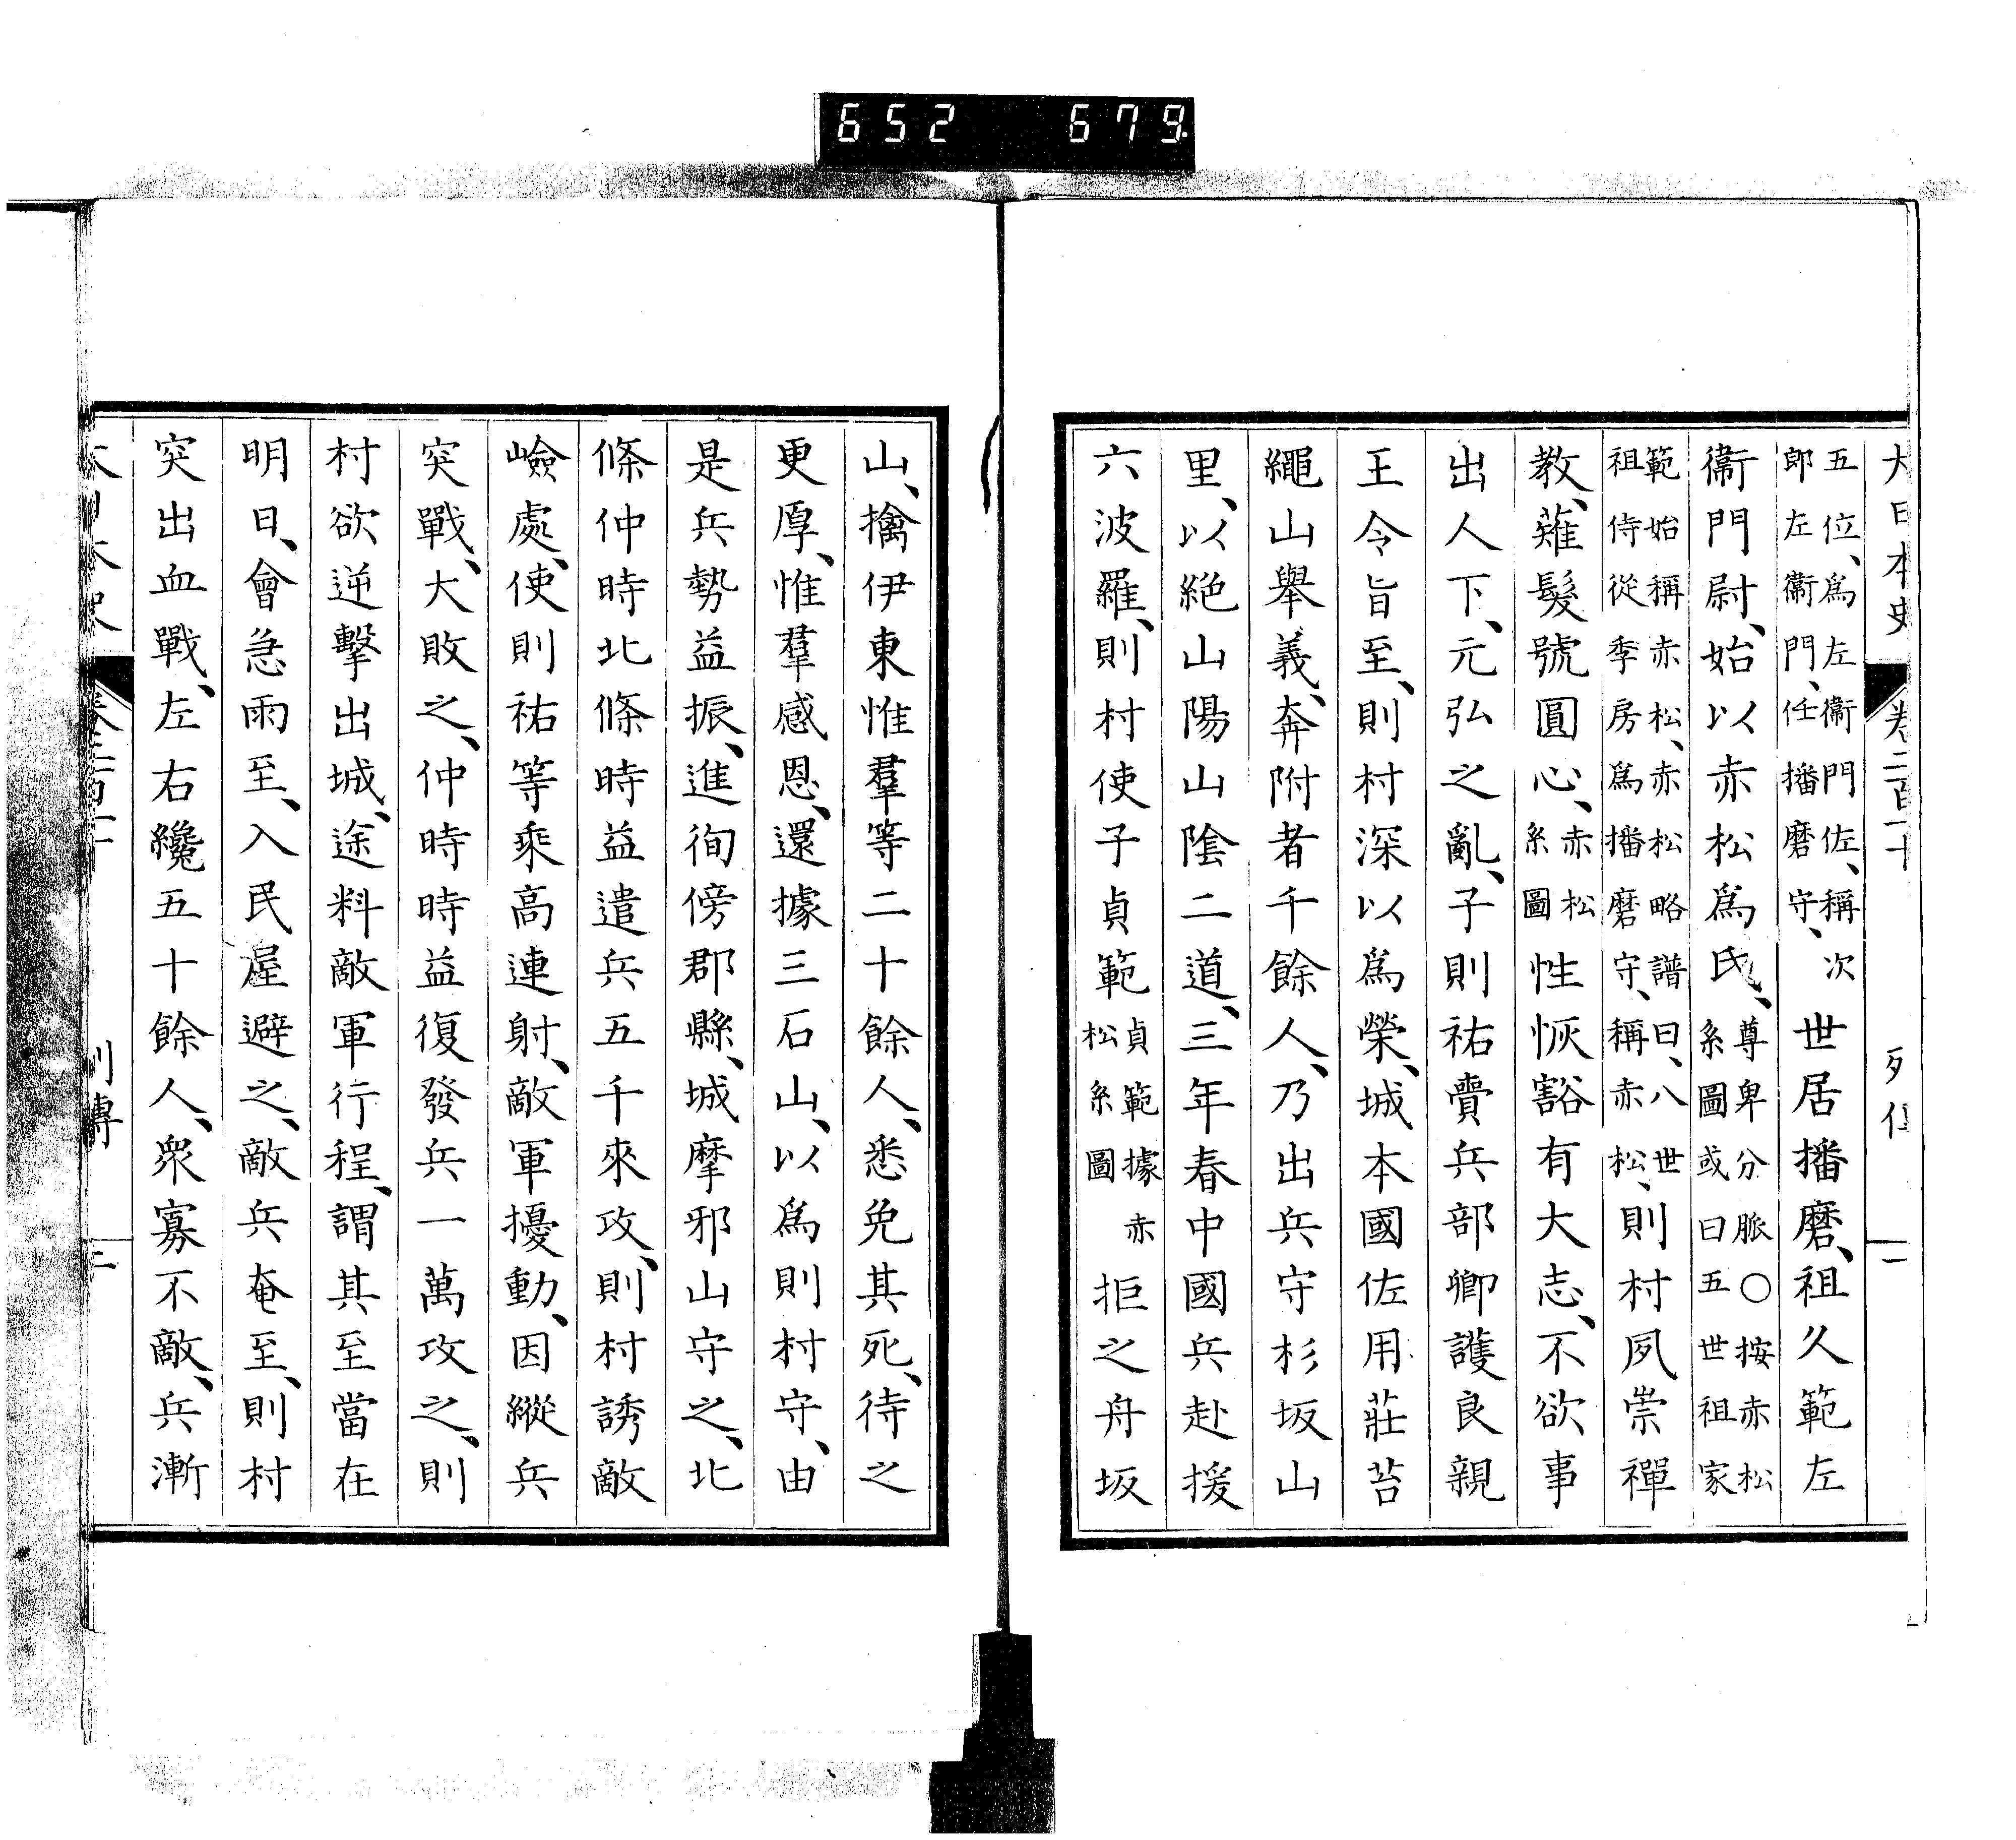 大日本史 列傳 一
五位、爲左衞門佐、稱次
郎左衞門、任播磨守、
世居播磨、祖久範左
衞門尉、始以赤松爲氏、
尊卑分脈○按赤松
系圖或曰五世祖家
範始稱赤松、赤松略譜曰、八世
祖侍從季房爲播磨守、稱赤松、
則村夙崇禪
教、薙髮號圓心、
赤松
系圖
性恢豁有大志、不欲事
出人下、元弘之亂、子則祐賷兵部卿護良親
王令旨至、則村深以爲榮、城本國佐用莊苔
繩山舉義、奔附者千餘人、乃出兵守杉坂山
里、以絶山陽山陰二道、三年春中國兵赴援
六波羅、則村使子貞範
貞範據赤
松系圖
拒之舟坂
山、擒伊東惟羣等二十餘人、悉免其死、待之
更厚、惟羣感恩、還據三石山、以爲則村守、由
是兵勢益振、進徇傍郡縣、城摩邪山守之、北
條仲時北條時益遣兵五千來攻、則村誘敵
嶮處、使則祐等乘高連射、敵軍擾動、因縱兵
突戰、大敗之、仲時時益復發兵一萬攻之、則
村欲逆擊出城、途料敵軍行程、謂其至當在
明日、會急雨至、入民屋避之、敵兵奄至、則村
突出血戰、左右纔五十餘人、衆寡不敵、兵漸
652 679